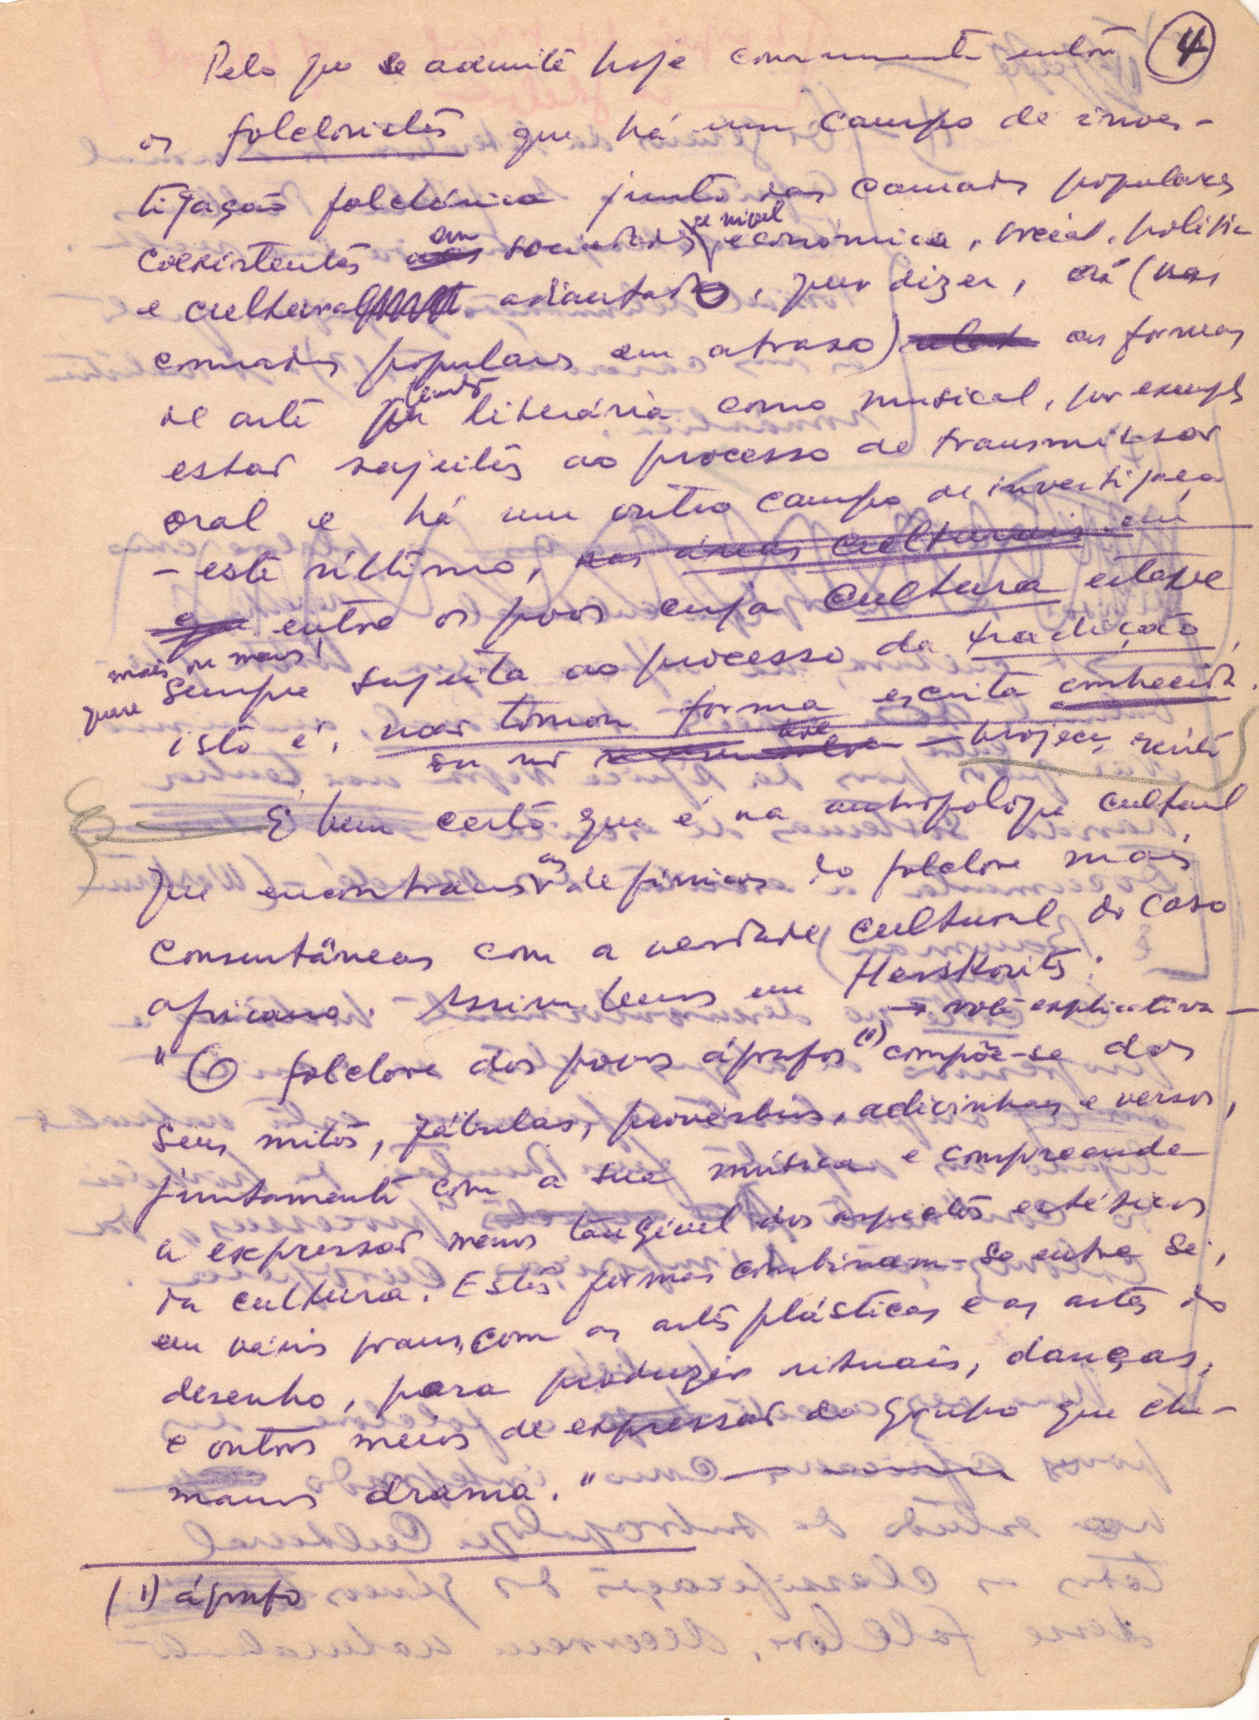 4
Pelo que se admite hoje comummente entre
os folcloristas que há um campo de inves-
tigação folclórica junto das camadas populares
coexistentes em sociedades de nível económico, social, político
e cultural adiantado, quer dizer, (nas
camadas populares em atraso) as formas
de arte literária como musical, por exemplo
estão sujeitas ao processo de transmissão
oral e há um outro campo de investigação
- este último, nas áreas culturais em
entre os povos cuja cultura esteve
mais ou menos
quase sempre sujeita ao processo da tradição,
isto é, não tomou forma escrita conhecida.
ou não
É bem certo que é na antropologia cultural
que encontramos as definições do folclore mais
consentâneas com a verdade cultural do caso
africano. Assim temos em Herskovits:
→ nota explicativa -
"O folclore dos povos ágrafos (1) compõe-se dos
seus mitos, fábulas, provérbios, adivinhas e versos,
juntamente com a sua música e compreende
a expressão menos tangível dos aspectos estéticos
da cultura. Estas formas combinam-se entre si,
em vários graus, com as artes plásticas e as artes do
desenho, para produzir rituais, danças,
e outros meios de expressão do grupo que cha-
mamos drama."
(1) ágrafo